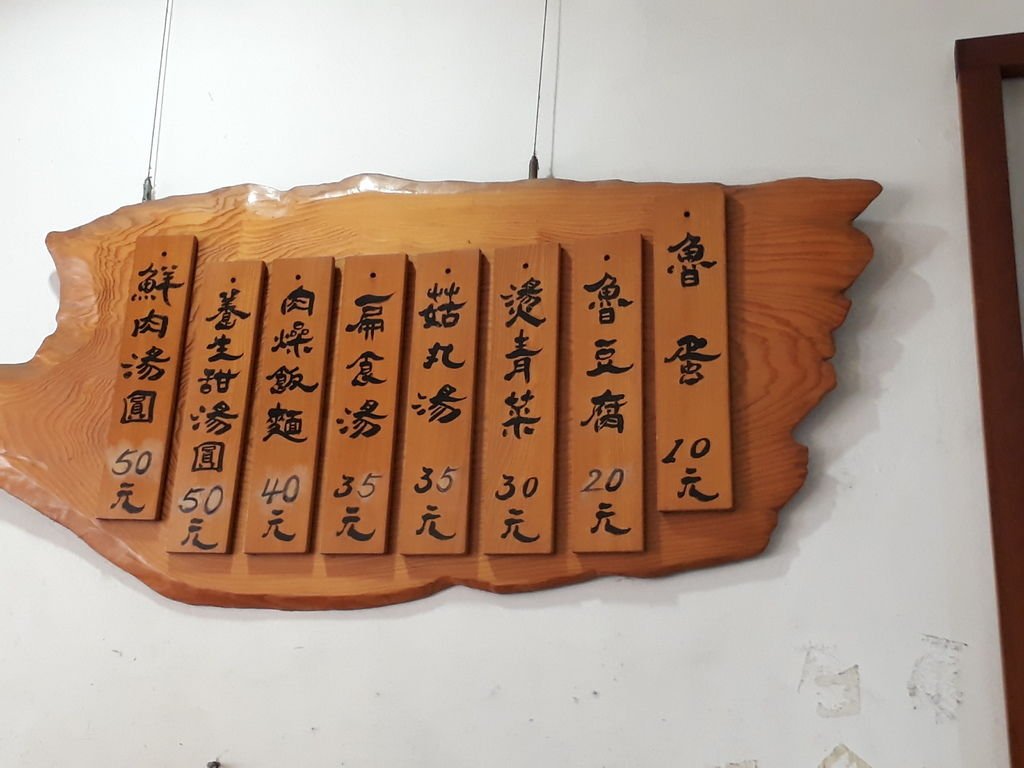 魯蛋 10元
魯豆腐 20元
燙青菜 30元
菇丸湯 35元
扁食湯 35元
肉燥飯麵 40元
養生甜湯圓 50元
鮮肉湯圓 50元